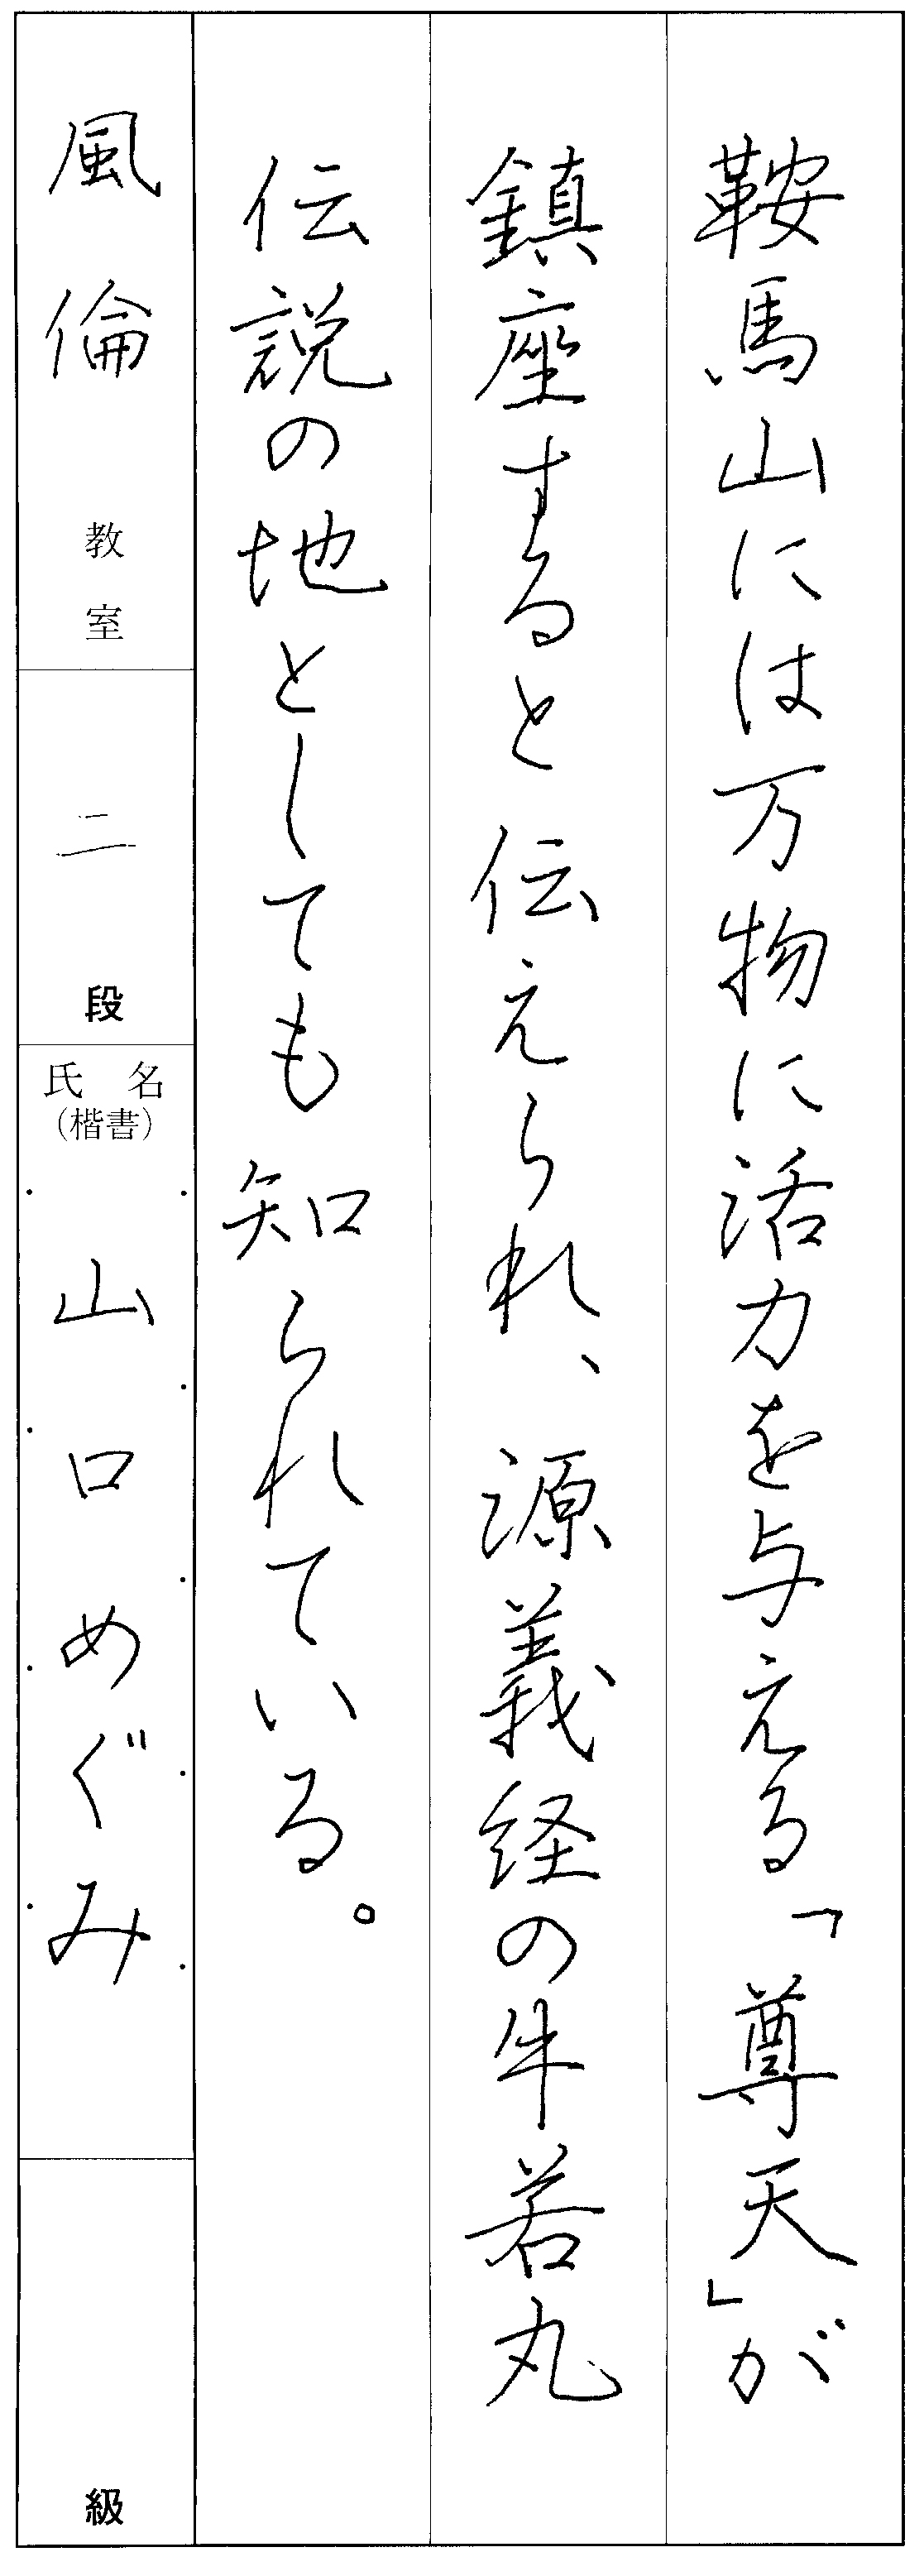 鞍馬山には万物に活力を与える「尊天」が
鎮座すると伝えられ、源義経の牛若丸
伝説の地としても知られている。
風倫教室
二段
氏名
（楷書）
山口めぐみ
級